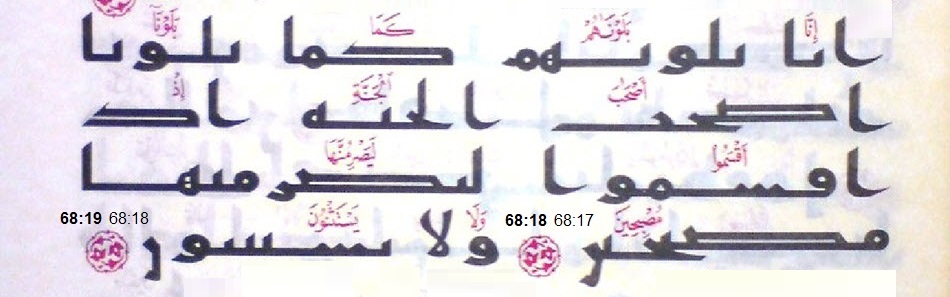 إِنَّا بَلَوْنَٰهُمْ كَمَا بَلَوْنَآ
انا بلونهم كما بلونا
أَصْحَٰبَ ٱلْجَنَّةِ إِذْ
اصحب الجنه اذ
أَقْسَمُوا لَيَصْرِمُنَّهَا
اقسموا ليصرمنها
مُصْبِحِينَ وَلَا يَسْتَثْنُونَ
68:18 68:17
68:19 68:18
مصبحين ولا يستثنون